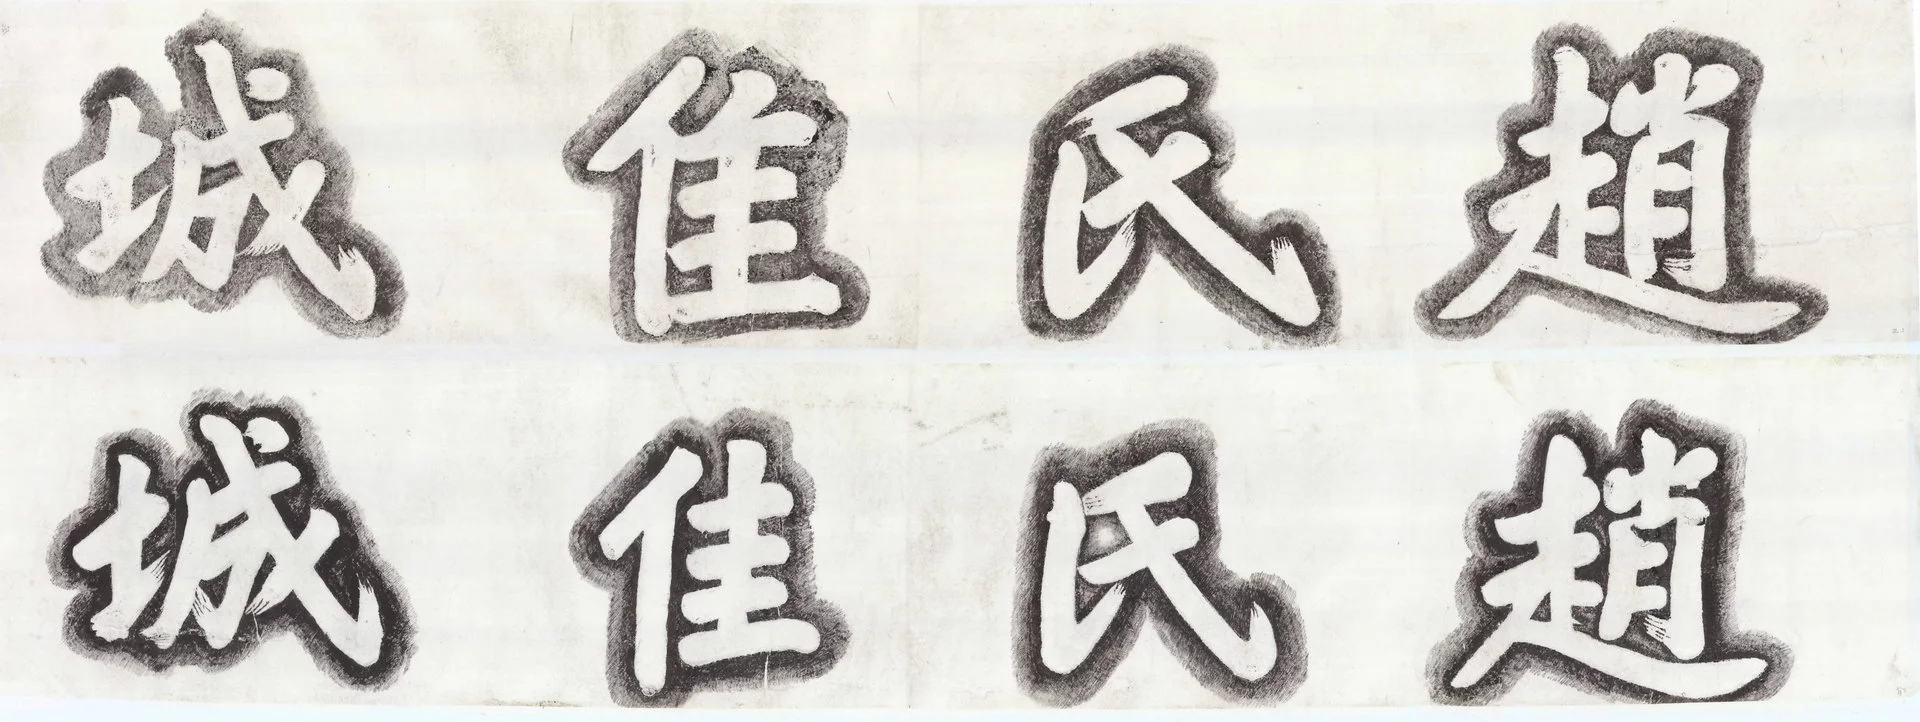 趙氏佳城
趙氏佳城